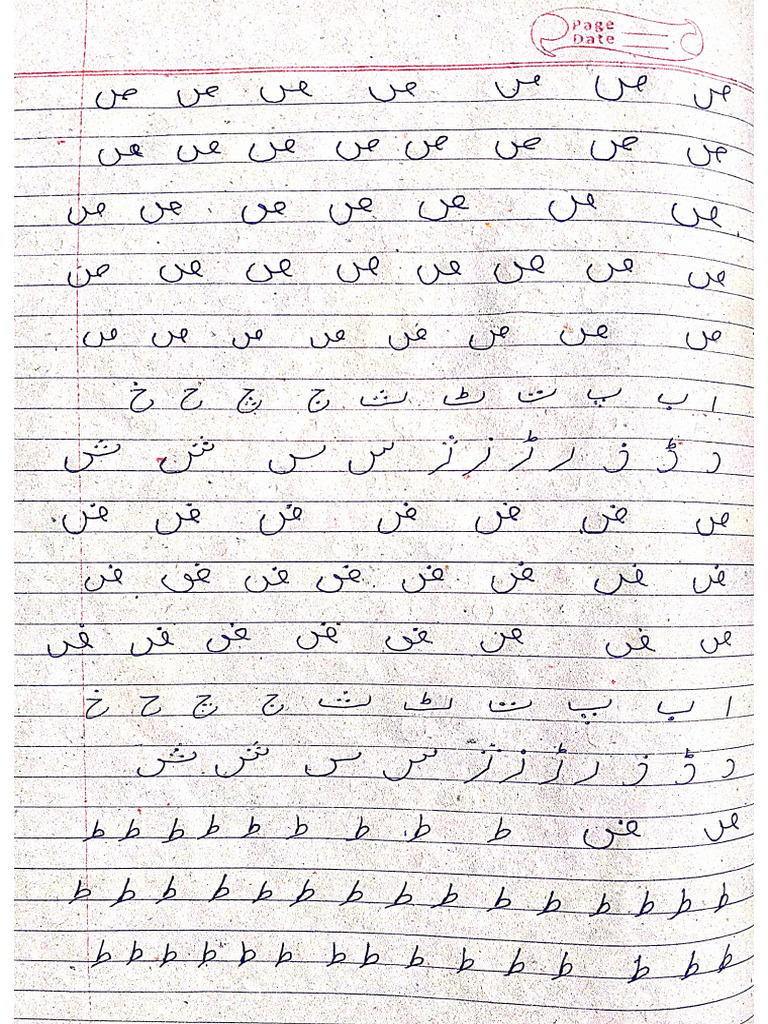 Page
Date
ص ص ص ص ص ص ص
ص ص ص ص ص ص ص ص
ص ص ص ص ص ص ص
ص ص ص ص ص ص ص ص
ص ص ص ض ص ص ص ص
ا ب پ ت ٹ ث ج چ ح خ
د ڈ ذ ر ڑ ز ژ س س ش ش
ص ض ض ض ض ض ض
ض ض ض ض ض ض ض ض
ص ض ض ض ض ض ض ض
ا ب پ ت ٹ ث ج چ ح خ
د ڈ ذ ر ڑ ز ژ س س ش ش
ص ض ط ط ط ط ط ط ط ط ط
ط ط ط ط ط ط ط ط ط ط ط ط ط ط ط
ط ط ط ط ط ط ط ط ط ط ط ط ط ط ط